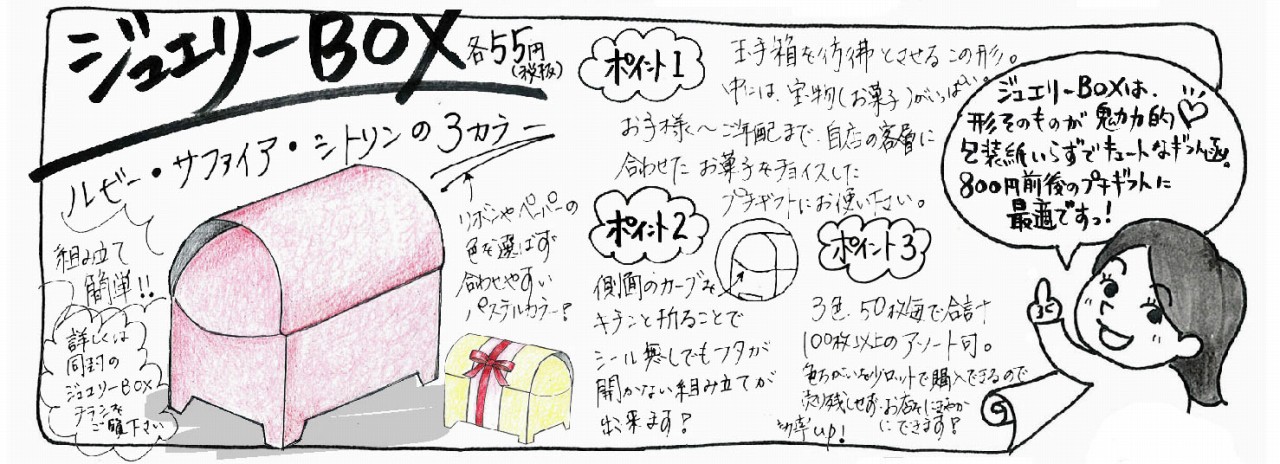 ジュエリーBOX
各55円
(税抜)
ルビー・サファイア・シトリンの3カラー
組み立て
簡単!!
詳しくは
同封の
ジュエリーBOX
チラシを
ご覧下さい
リボンやペーパーの
色を選ばず
合わせやすい
パステルカラー!
ポイント1
玉手箱を彷彿とさせるこの形。
中には、宝物(お菓子)がいっぱい。
お子様〜ご年配まで、自店の客層に
合わせたお菓子をチョイスした
プチギフトにお使い下さい。
ポイント2
側面のカーブを
キチンと折ることで
シール無しでもフタが
開かない組み立てが
出来ます!
ポイント3
3色、50枚毎で合計
100枚以上のアソート可。
色ちがいを小ロットで購入できるので
売り残しせず、お店をにぎやか
にできます!
効率up!
ジュエリーBOXは、
形そのものが魅力的♡
包装紙いらずでキュートなギフト函!
800円前後のプチギフトに
最適ですっ!